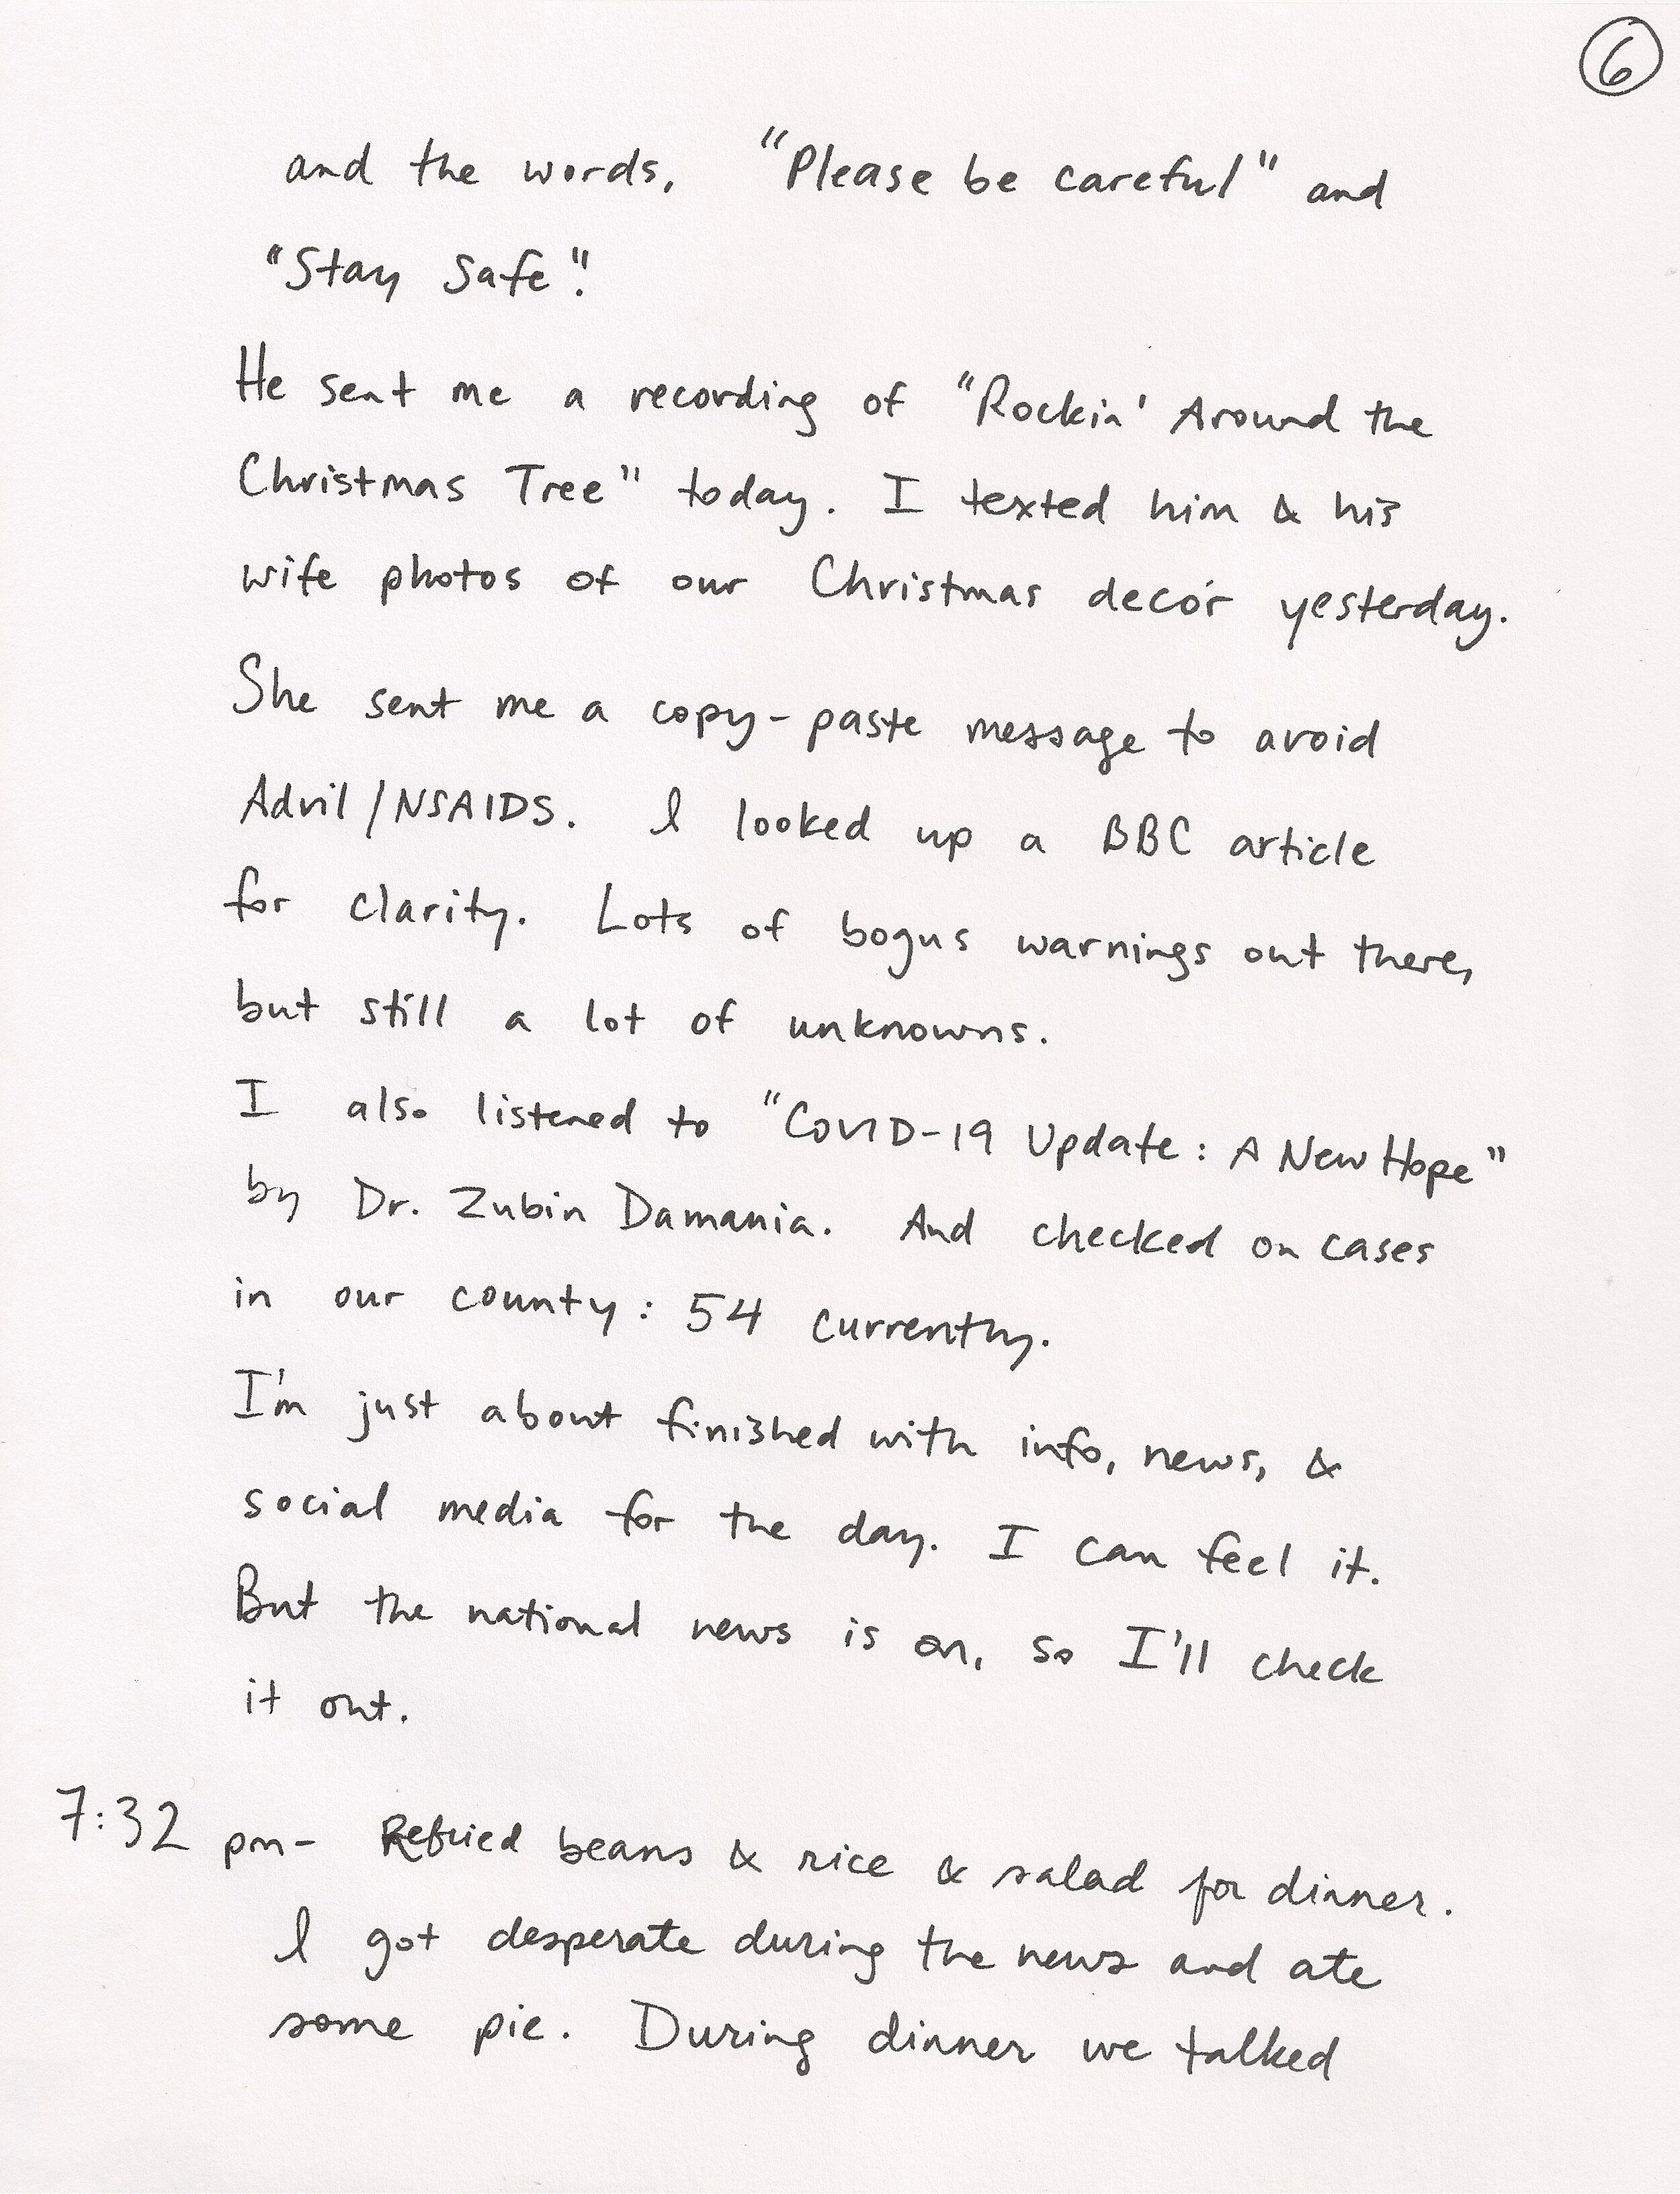 6
and the words, "Please be careful" and
"Stay Safe".
He sent me a recording of "Rockin' Around the
Christmas Tree" today. I texted him & his
wife photos of our Christmas decór yesterday.
She sent me a copy-paste message to avoid
Advil/NSAIDS. I looked up a BBC article
for clarity. Lots of bogus warnings out there,
but still a lot of unknowns.
I also listened to "COVID-19 Update: A New Hope"
by Dr. Zubin Damania. And checked on cases
in our county: 54 currently.
I'm just about finished with info, news, &
social media for the day. I can feel it.
But the national news is on, so I'll check
it out.
7:32 pm- Refried beans & rice & salad for dinner.
I got desperate during the news and ate
some pie. During dinner we talked